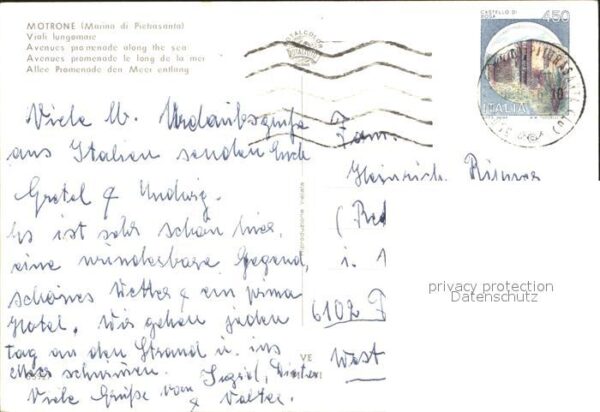 MOTRONE (Marina di Pietrasanta)
Viali lungomare
Avenues promenade along the sea
Avenues promenade le long de la mer
Allee Promenade den Meer entlang
CASTELLO DI
ROSA
450
ITALIA
Viele lb. Urlaubsgrüße
aus Italien senden Euch
Gretel & Ludwig.
Es ist sehr schön hier,
eine wunderbare Gegend,
schönes Wetter & ein prima
Hotel. Wir gehen jeden
Tag an den Strand u. ins
Meer schwimmen.
Viele Grüße von Ingrid, Dieter
& Walter.
Riproduzione vietata
VE
Fam.
Heinrich
(
i.
6102
West
privacy protection
Datenschutz